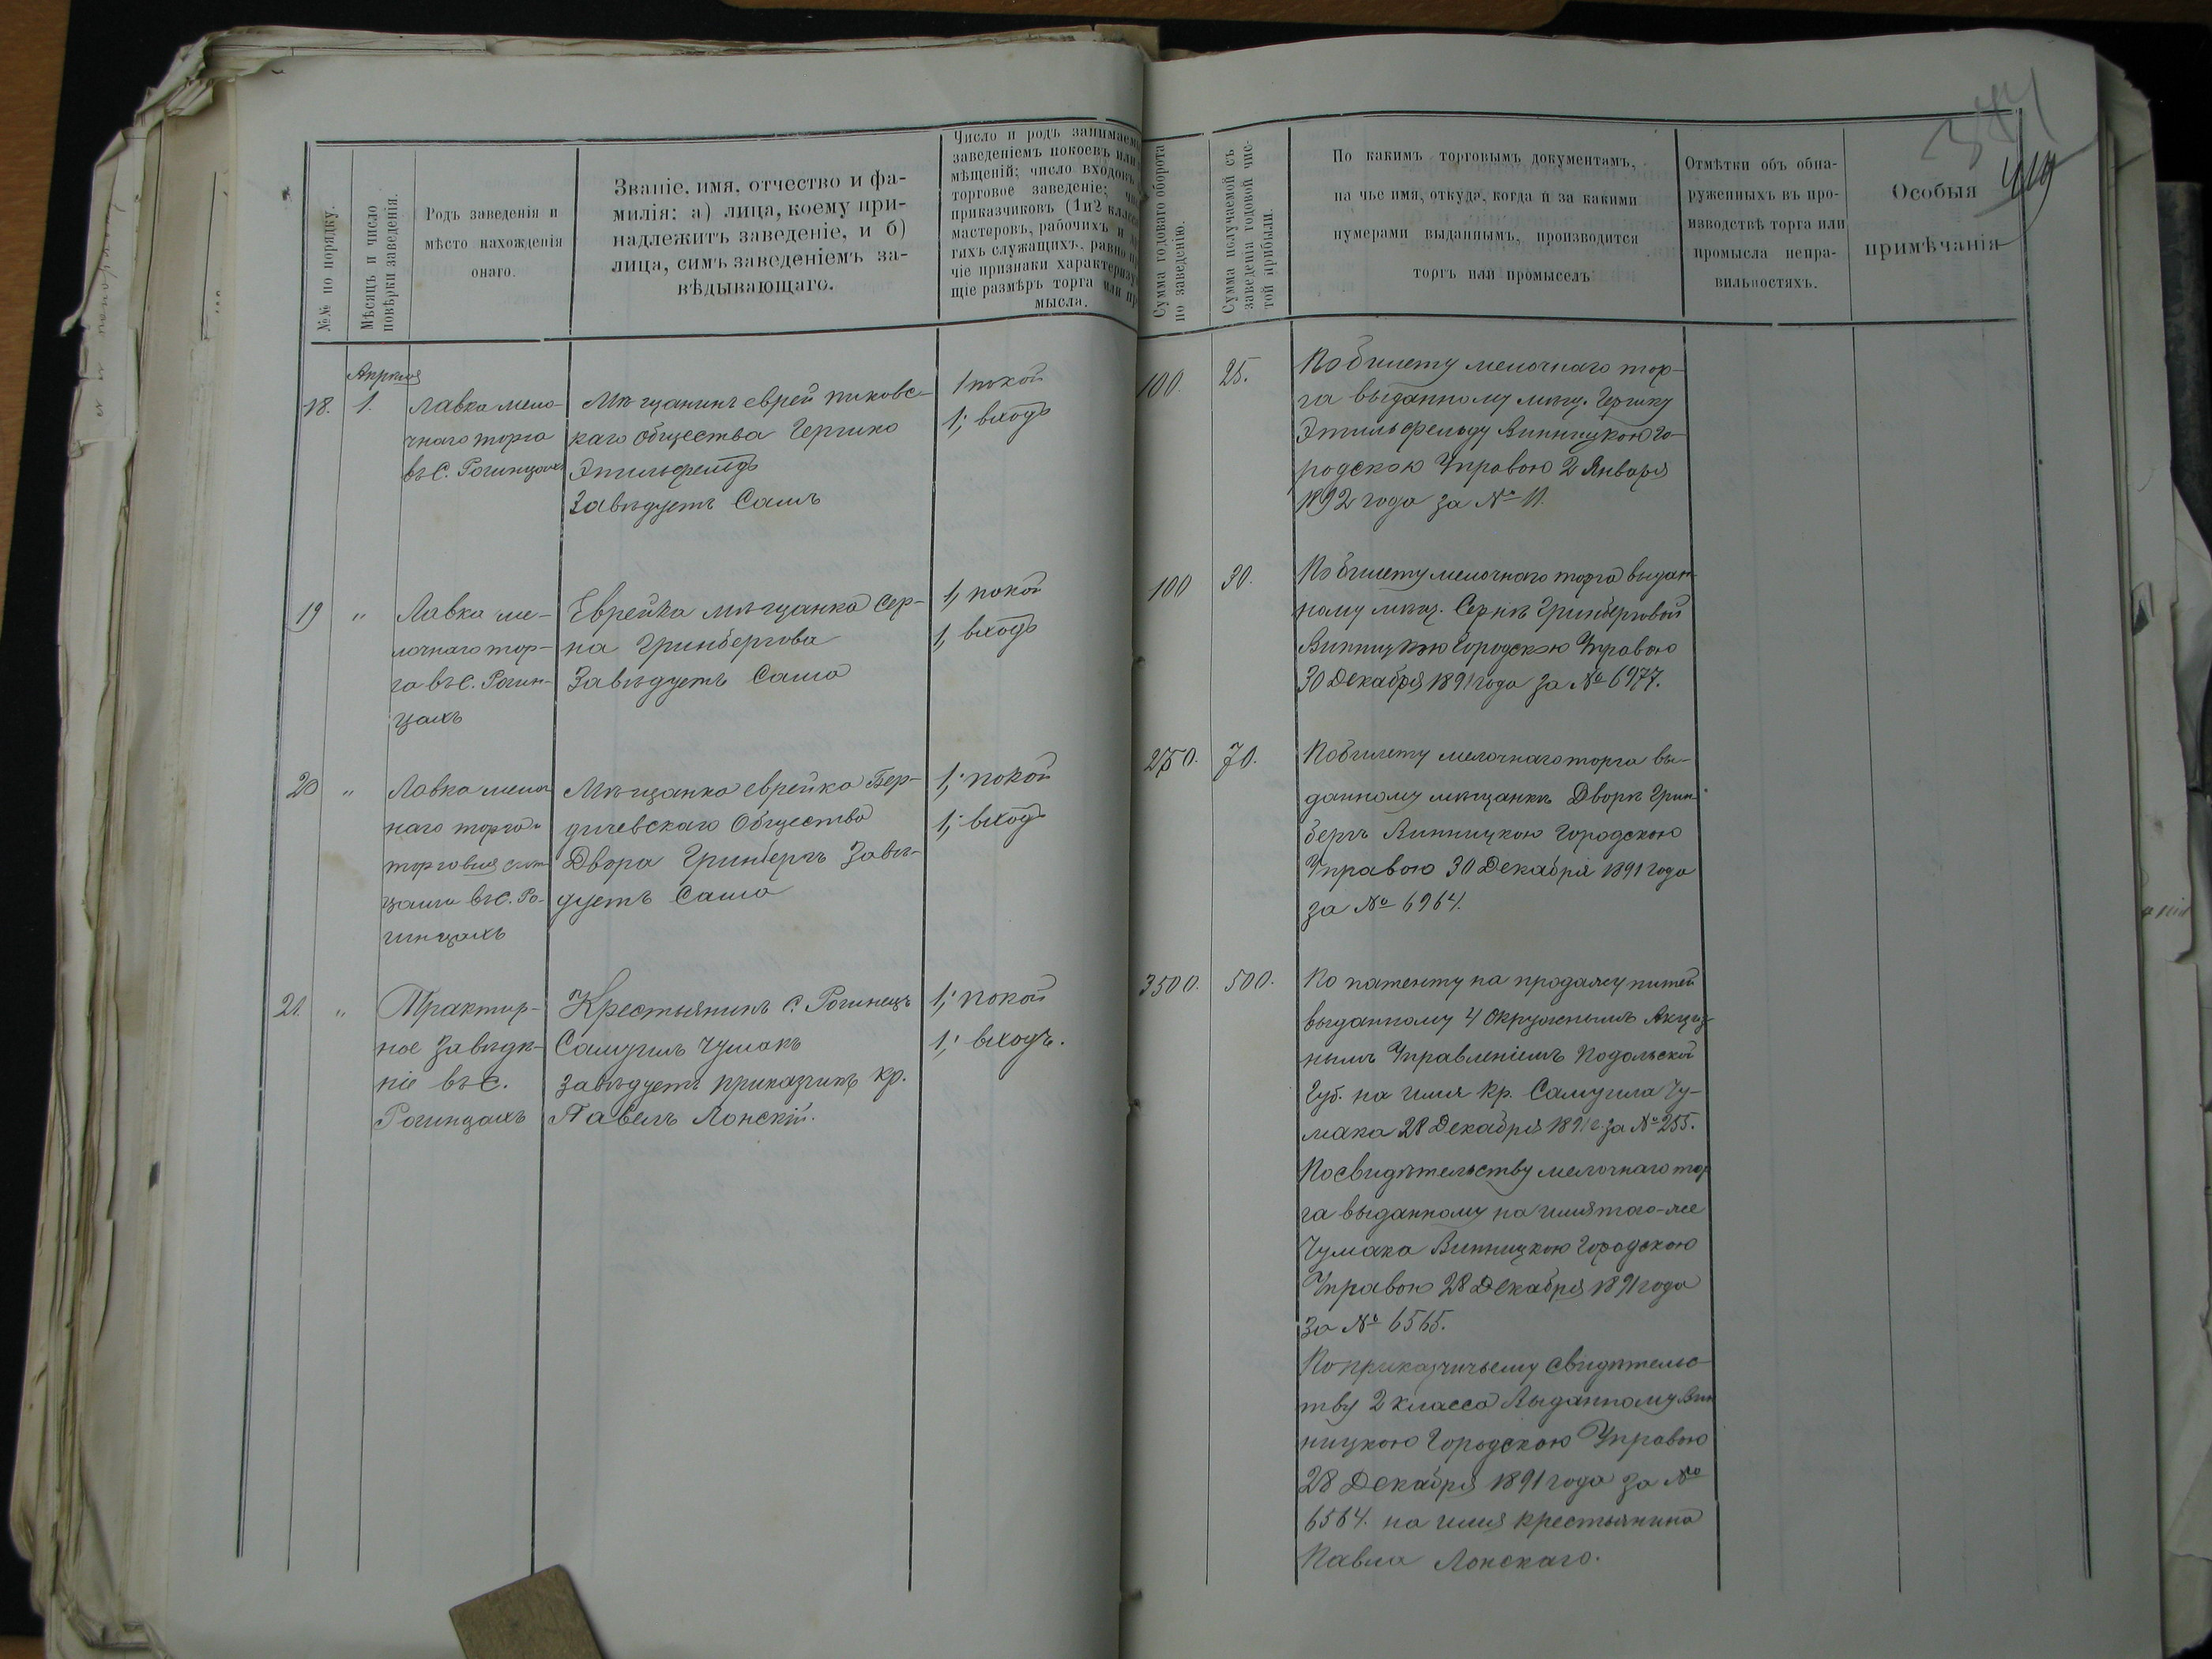 №№ по порядку.
Мѣсяцъ и число
повѣрки заведенія.
Родъ заведенія и
мѣсто нахожденія
онаго.
Званіе, имя, отчество и фа-
милія: а) лица, коему при-
надлежитъ заведеніе, и б)
лица, симъ заведеніемъ за-
вѣдывающаго.
Число и родъ занимаем
заведеніемъ покоевъ или
мѣщеній; число входовъ
торговое заведеніе;
приказчиковъ (1 и 2 класс
мастеровъ, рабочихъ и
гихъ служащихъ, равно
чіе признаки характеризу
щіе размѣръ торга или пр
мысла.
Сумма годоваго оборота
по заведенію.
Сумма получаемой съ
заведенія годовой чис-
той прибыли.
По какимъ торговымъ документамъ,
на чье имя, откуда, когда и за какими
нумерами выданнымъ, производится
торгъ или промыселъ
Отмѣтки объ обна-
руженныхъ въ про-
изводствѣ торга или
промысла непра-
вильностяхъ.
Особыя
примѣчанія
Апрѣля
18. 1.
Лавка мело-
чнаго торга
въ с. Рогинцахъ
Мѣщанинъ еврей пиковс-
каго общества Гершко
Этильфельдъ
Завѣдуетъ Самъ
1 покой
1; входъ
100. 25.
По билету мелочнаго тор-
га выданному мѣщ. Гершку
Этильфельду Винницкою Го-
родскою Управою 2 Января
1892 года за № 11.
19 "
Лавка ме-
лочнаго тор-
га въ с. Рогин-
цахъ
Еврейка мѣщанка Сер-
на Гринбергова
Завѣдуетъ Сама
1, покой
1, входъ
100 30.
По билету мелочнаго торга выдан-
ному мѣщ. Сернѣ Гринберговой
Винницкою Городскою Управою
30 Декабря 1891 года за № 6977.
20 "
Лавка мелоч
наго торга и
торговля
въ с. Ро-
гинцахъ
Мѣщанка еврейка Бер-
дичевскаго Общества
Двора Гринбергъ Завѣ-
дуетъ Сама
1; покой
1; входъ
250. 70.
По билету мелочнаго торга вы-
данному мѣщанкѣ Дворѣ Грин-
бергъ Винницкою Городскою
Управою 30 Декабря 1891 года
за № 6964.
21. "
Трактир-
ное Заведе-
ніе въ с.
Рогинцахъ
Крестьянинъ с. Рогинецъ
Самуилъ Чумакъ
завѣдуетъ приказчикъ кр.
Павелъ Лонскій.
1; покой
1; входъ.
3500. 500.
По патенту на продажу питей
выданному 4 Окружнымъ Акциз-
нымъ Управленіемъ Подольской
Губ. на имя кр. Самуила Чу-
мака 28 Декабря 1891 г. за № 255.
По свидѣтельству мелочнаго тор
га выданному на имя того-же
Чумака Винницкою Городскою
Управою 28 Декабря 1891 года
за № 6565.
По приказчичьему свидѣтельс-
тву 2 класса Выданному Вин
ницкою Городскою Управою
28 Декабря 1891 года за №
6564. на имя крестьянина
Павла Лонскаго.